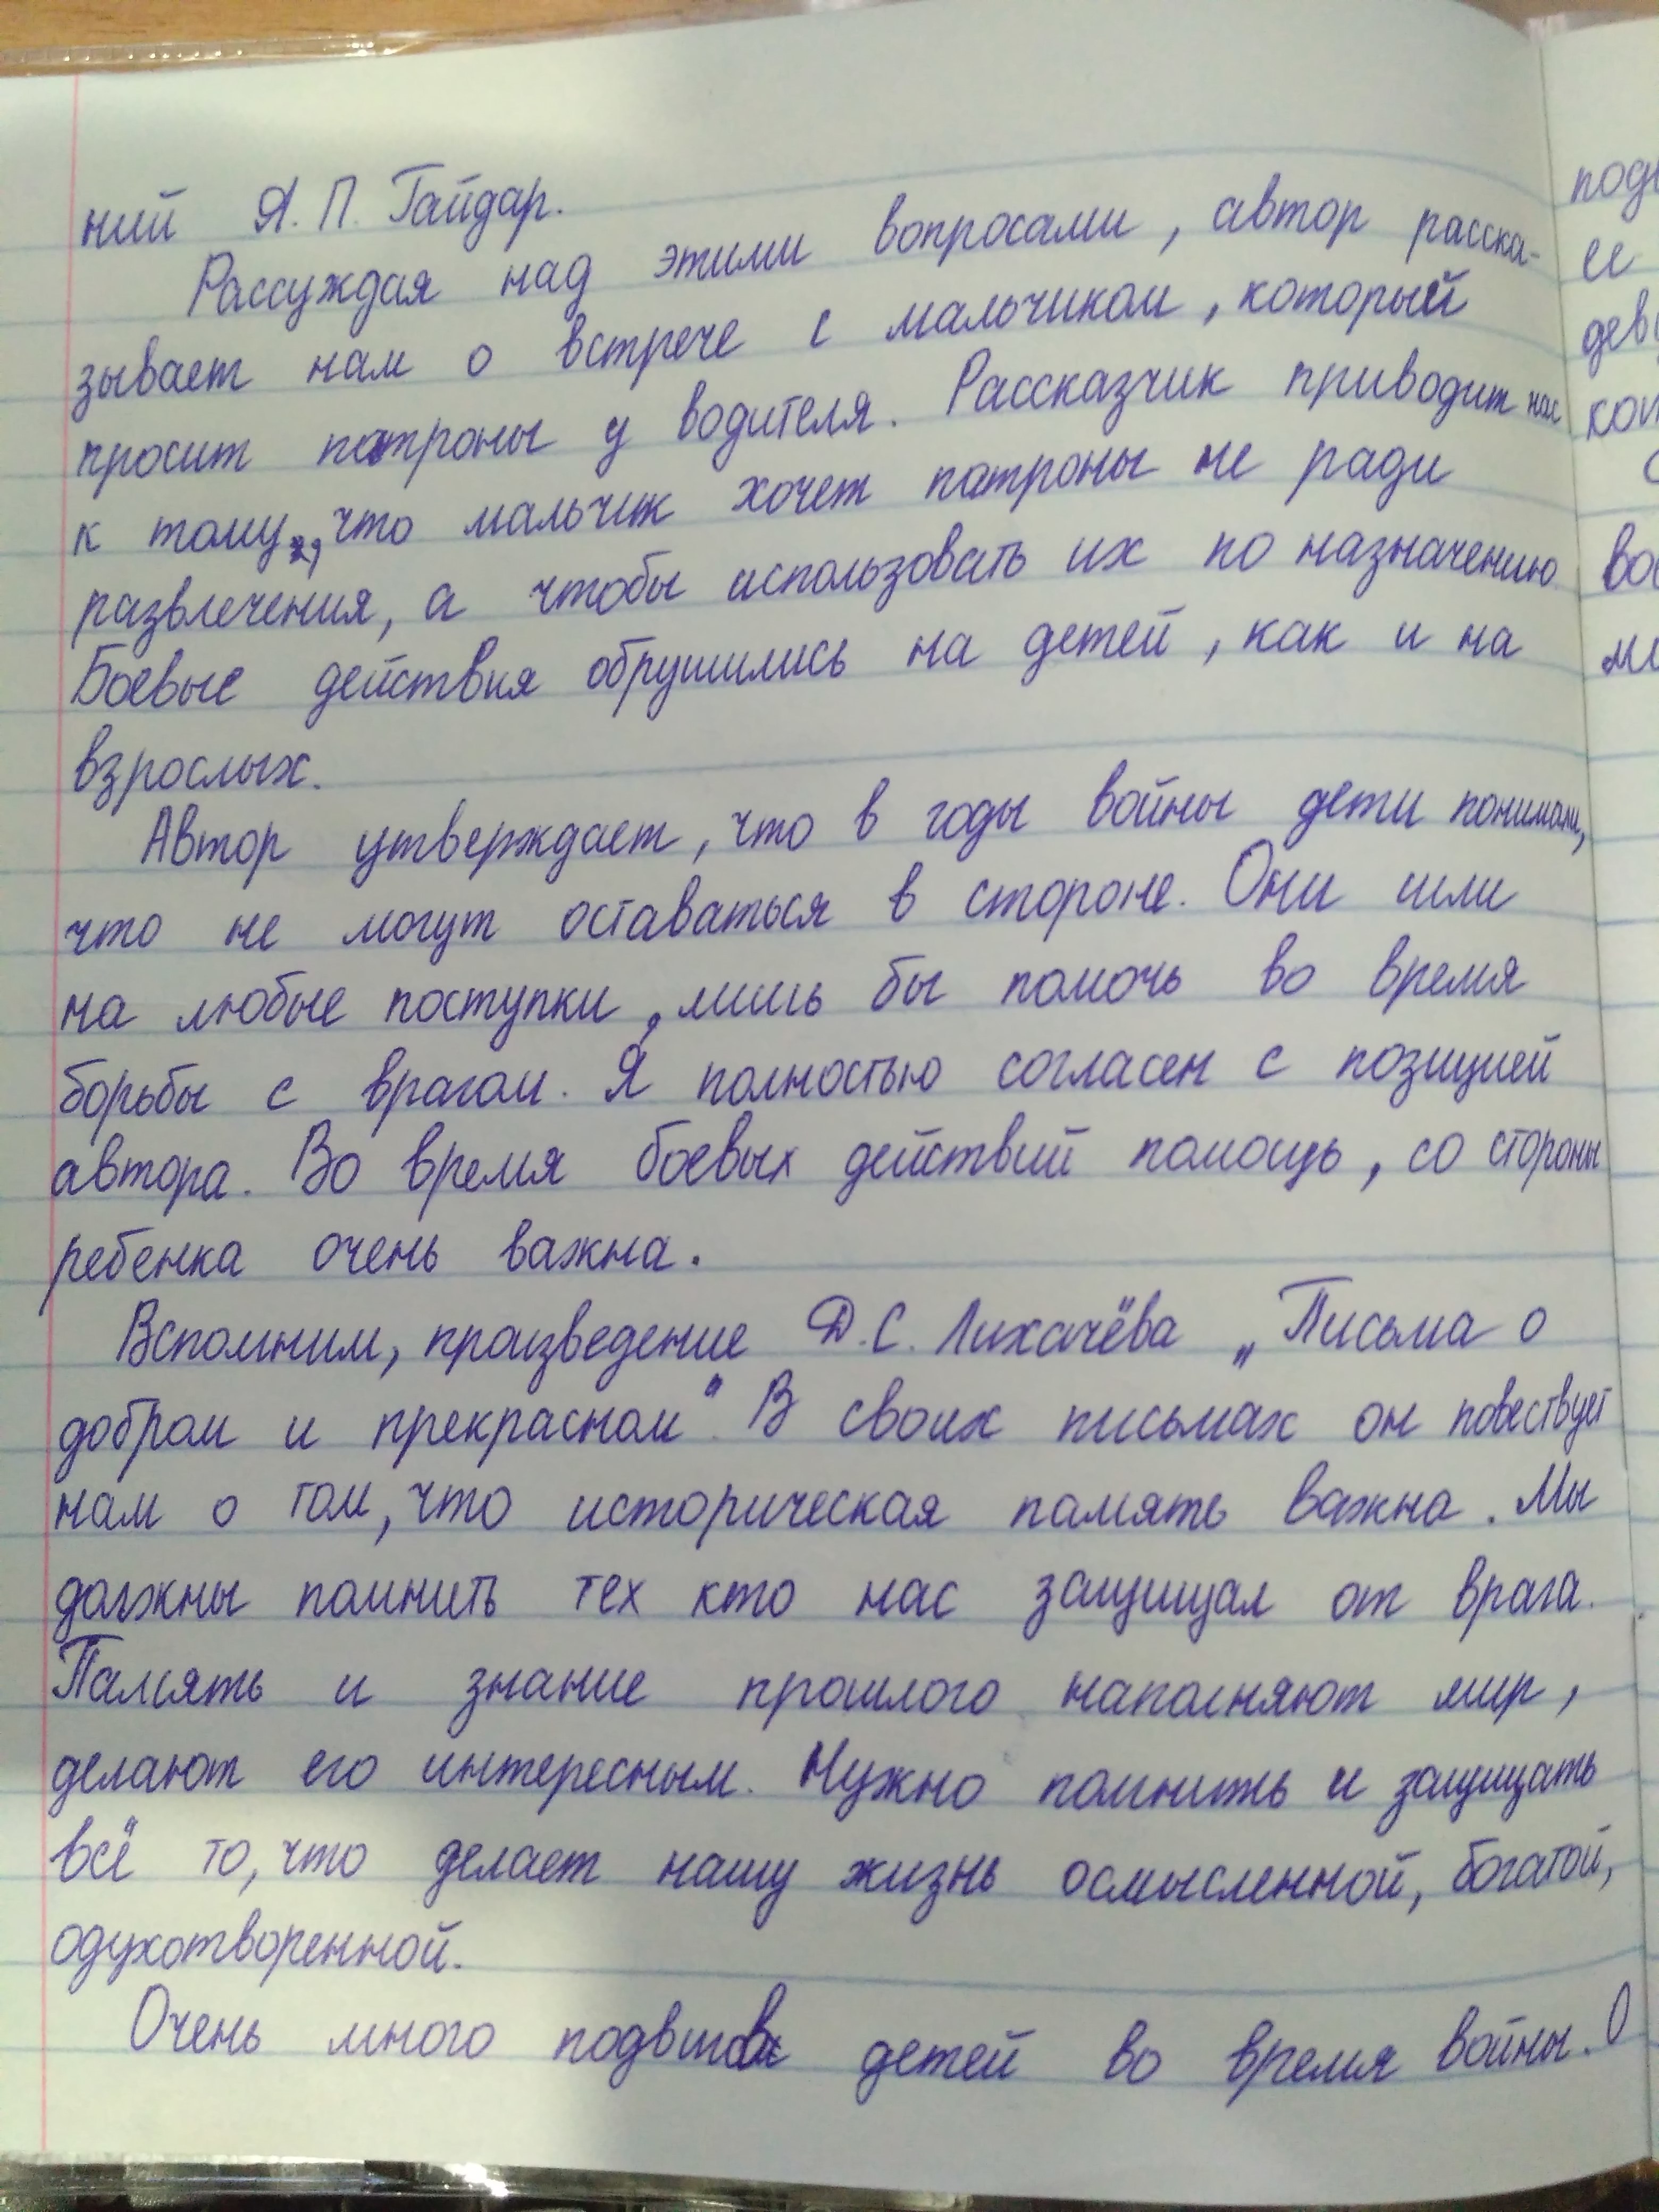 ний А. П. Гайдар.
Рассуждая над этими вопросами, автор расска-
зывает нам о встрече с мальчиком, который
просит патроны у водителя. Рассказчик приводит нас
к тому, что мальчик хочет патроны не ради
развлечения, а чтобы использовать их по назначению.
Боевые действия обрушились на детей, как и на
взрослых.
Автор утверждает, что в годы войны дети понимали,
что не могут оставаться в стороне. Они шли
на любые поступки, лишь бы помочь во время
борьбы с врагом. Я полностью согласен с позицией
автора. Во время боевых действий помощь, со стороны
ребенка очень важна.
Вспомним, произведение Д. С. Лихачёва „Письма о
добром и прекрасном". В своих письмах он повествует
нам о том, что историческая память важна. Мы
должны помнить тех кто нас защищал от врага.
Память и знание прошлого наполняют мир,
делают его интересным. Нужно помнить и защищать
всё то, что делает нашу жизнь осмысленной, богатой,
одухотворенной.
Очень много детей во время войны. О